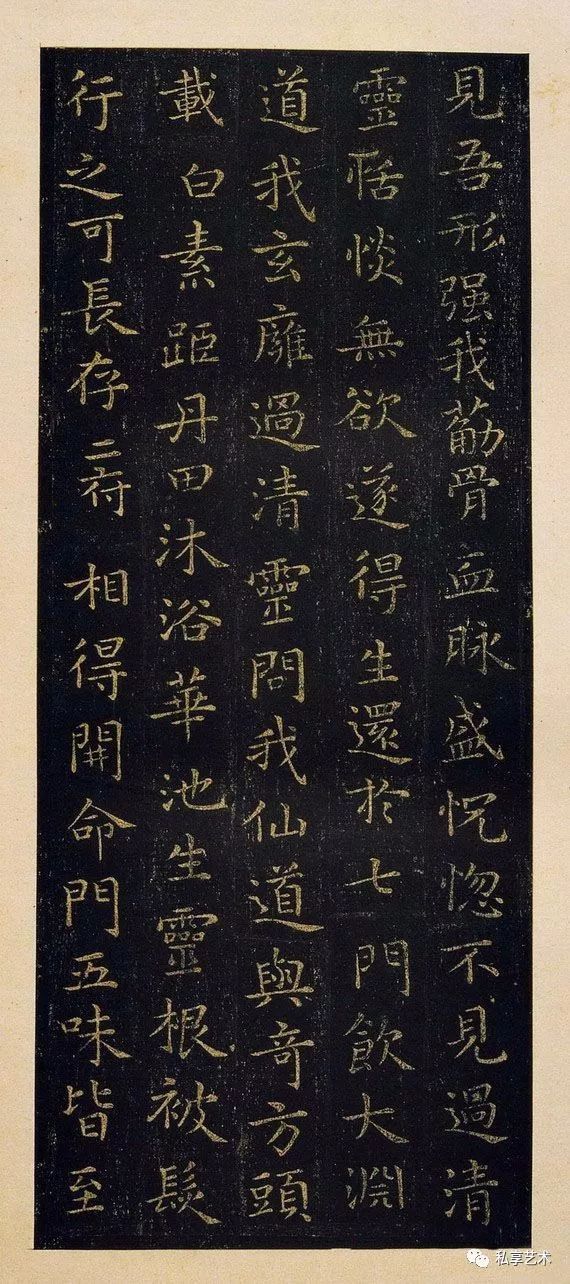 見吾形强我茘骨血脉盛怳惚不見過清
靈恬惔無欲遂得生還於七門飲大淵
道我玄廱過清靈問我仙道與奇方頭
載白素距丹田沐浴華池生靈根被髮
行之可長存二府相得開命門五味皆至
私享艺术